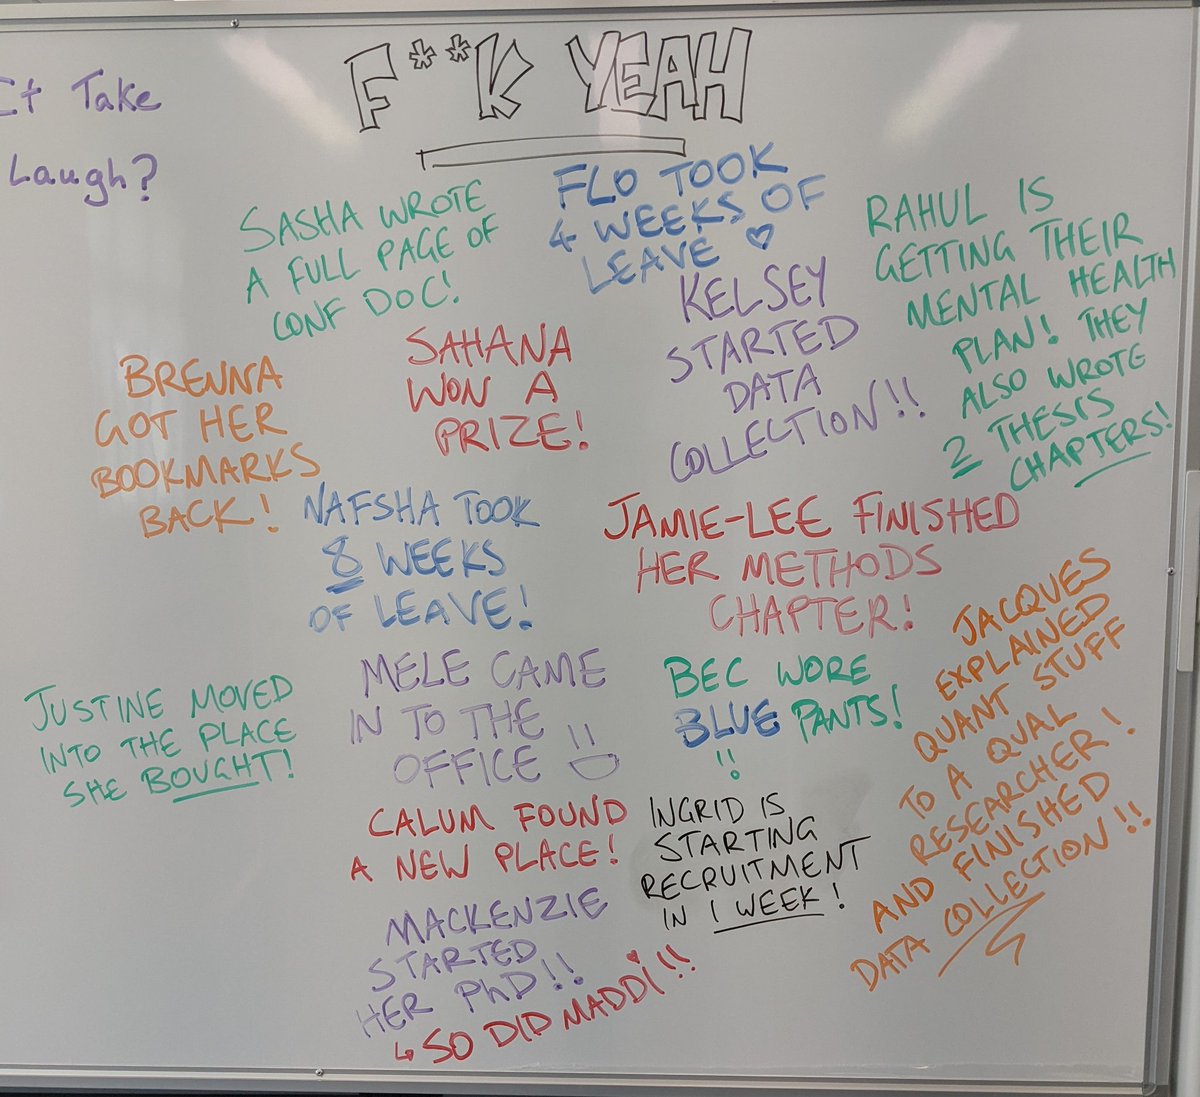 ct Take
Laugh?
F**K YEAH
SASHA WROTE
A FULL PAGE OF
CONF DOC!
FLO TOOK
4 WEEKS OF
LEAVE ♡
RAHUL IS
GETTING THEIR
MENTAL HEALTH
PLAN! THEY
ALSO WROTE
2 THESIS
CHAPTERS!
KELSEY
STARTED
DATA
COLLECTION!!
SAHANA
WON A
PRIZE!
BRENNA
GOT HER
BOOKMARKS
BACK!
NAFSHA TOOK
8 WEEKS
OF LEAVE!
JAMIE-LEE FINISHED
HER METHODS
CHAPTER!
JACQUES
EXPLAINED
QUANT STUFF
TO A QUAL
RESEARCHER!
AND FINISHED
DATA COLLECTION!!
JUSTINE MOVED
INTO THE PLACE
SHE BOUGHT!
MELE CAME
IN TO THE
OFFICE
BEC WORE
BLUE PANTS!
!!
CALUM FOUND
A NEW PLACE!
INGRID IS
STARTING
RECRUITMENT
IN 1 WEEK!
MACKENZIE
STARTED
HER PhD!!
↳ SO DID MADDI!!